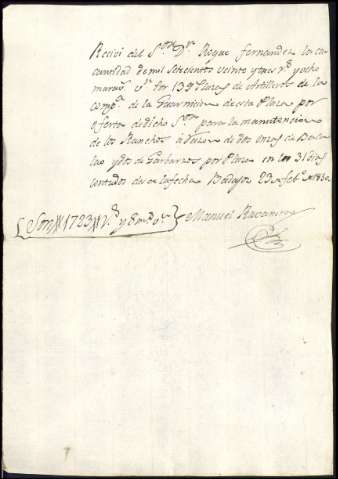 Recivi del S.or D.n Roque Fernandez la ca
cantidad de mil setecientos veinte y tres r.s y ocho
marav.s v.n por 139 Plazas de Artilleros de la
comp.a de la Guarnicion de esta Plaza por
oferta de dicho S.or para la manutencion
de los Ranchos à razon de dos onzas de Baca
lao y dos de Garbanzos por Plaza en los 31 dias
contados de esta fecha Badajoz 23 de feb.o de 1830.
Son # 1723 # r.s y 8 mrs v.n Manuel